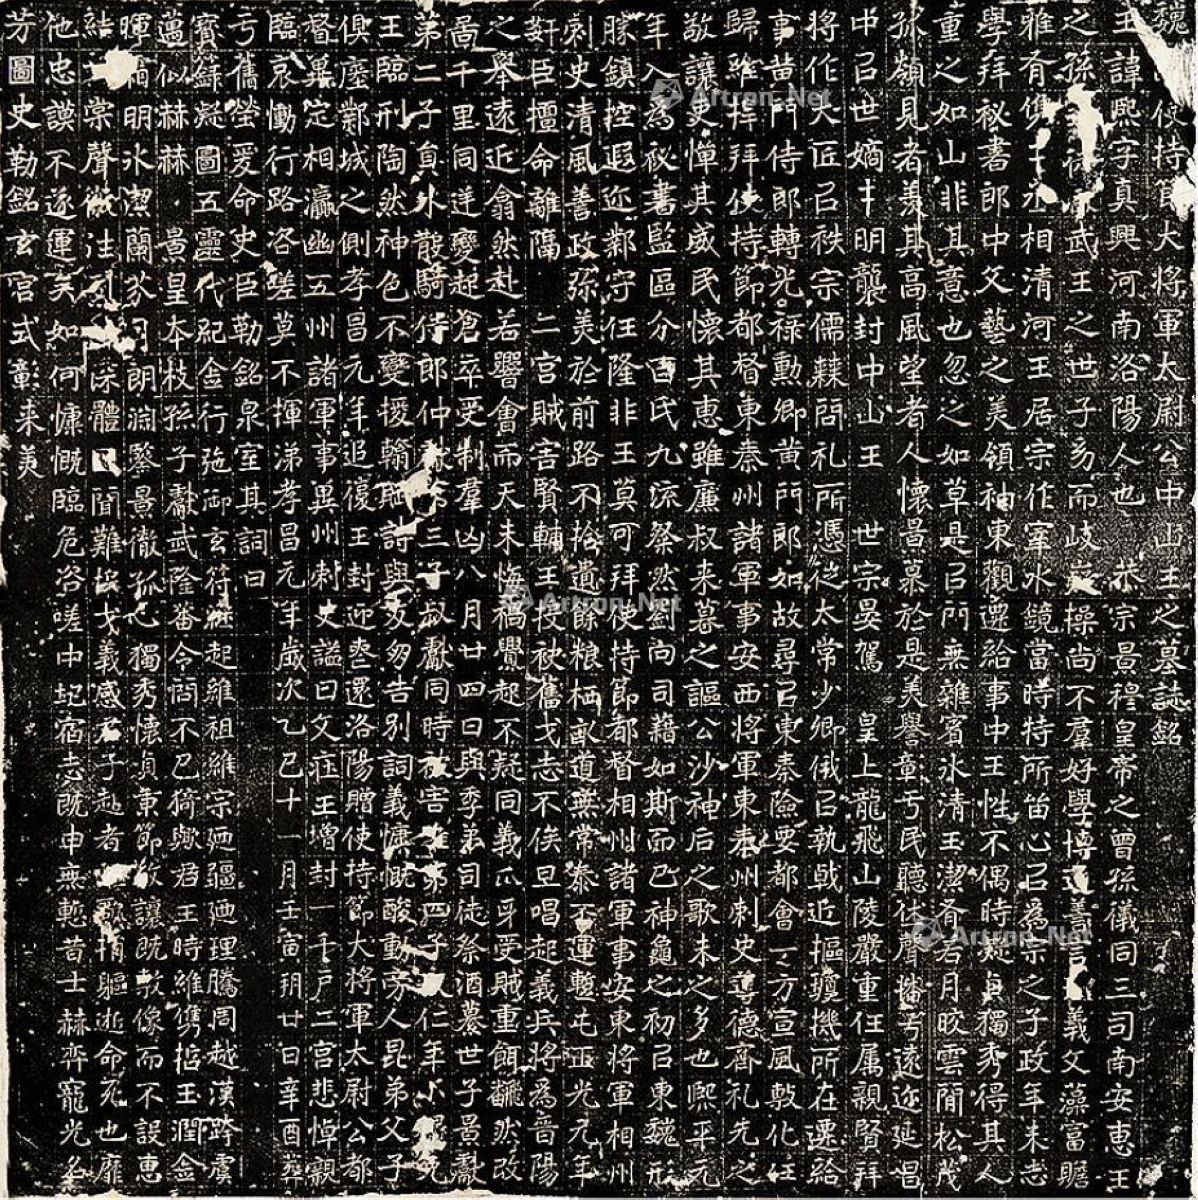 魏使持節大將軍太尉公中山王之墓誌銘
王諱熙字真興河南洛陽人也恭宗景穆皇帝之曾孫儀同三司南安惠王
之孫武王之世子㓜而岐操尚不羣好學博通善言義文藻富贍
雅有儁才丞相清河王居宗作宰水鏡當時特所留心召為宗之子政年未志
學拜秘書郎中文藝之美領袖東觀遷給事中王性不偶時凝貞獨秀得其人
重之如山非其意也忽之如草是召門無雜賓氷清玉潔脊若月皎雲間松茂
孤嶺見者羨其高風望者人懷景慕於是美譽童亏民聽休聲播亏遠迩延昌
中召世嫡才明襲封中山王世宗晏駕皇上龍飛山陵嚴重任属親賢拜
將作大匠召秩宗儒棘問礼所憑徙太常少卿俄召執戟近樞璇機所在遷給
事黄門侍郎轉光禄勲卿黄門郎如故尋召東秦險要都會一方宣風敷化任
歸雅拜拜使持節都督東秦州諸軍事安西將軍東秦州刺史導德齊礼先之
敬讓吏憚其威民懷其惠雖廉叔来暮之謳公沙神后之歌未之多也熙平元
年入為秘書監區分百氏九流粲然劉向司籍如斯而已神龜之初召東魏形
勝鎮控遐迩鄴守任隆非王莫可拜使持節都督相州諸軍事安東將軍相州
刺史清風善政弥美於前路不拾遺餘粮栖畝道無常泰否運蹔屯正光元年
奸臣擅命離隔二宫賊害賢輔王投袂舊戈志不俟旦唱起義兵將為晉陽
之舉遠近翕然赴若響會而天未悔禍舋起不疑同義爪牙受賊重餌翻然改
啚千里同逆變起倉卒受制羣凶八月廿四日與季弟司徒祭酒纂世子景獻
弟二子員外散騎侍郎仲獻三子叔獻同時被害弟四子仁年小得免
王臨刑陶然神色不變援翰賦詩與友朋告別詞義慷慨酸動旁人昆弟父子
俱瘞鄴城之側孝昌元年追復王封迎喪還洛陽贈使持節大將軍太尉公都
督冀定相瀛幽五州諸軍事冀州刺史謚曰文莊王增封一千户二宫悲悼親
臨哀慟行路咨嗟莫不揮涕孝昌元年歲次乙巳十一月壬寅朔廿日辛酉葬
亏舊塋爰命史臣勒銘泉室其詞曰
寳錄凝圖五靈代紀金行施御玄符起維祖維宗廼疆廼理騰周越漢跨虞
邁似赫赫景皇本枝孫子獻武隆蕃令問不已猗歟君王時維儁哲玉潤金
暉霜明氷潔蘭芬月朗淵鑒景徹孤心獨秀懷貞秉節敬讓既敷像而不設惠
結棠聲深體日聞難投戈義感君子赴者歌捐軀逝命死也靡
他忠謨不遂運矣如何慷慨臨危咨嗟中圮宿志既申無慙昔士赫弈寵光名
芳圖史勒銘玄宫式彰来美